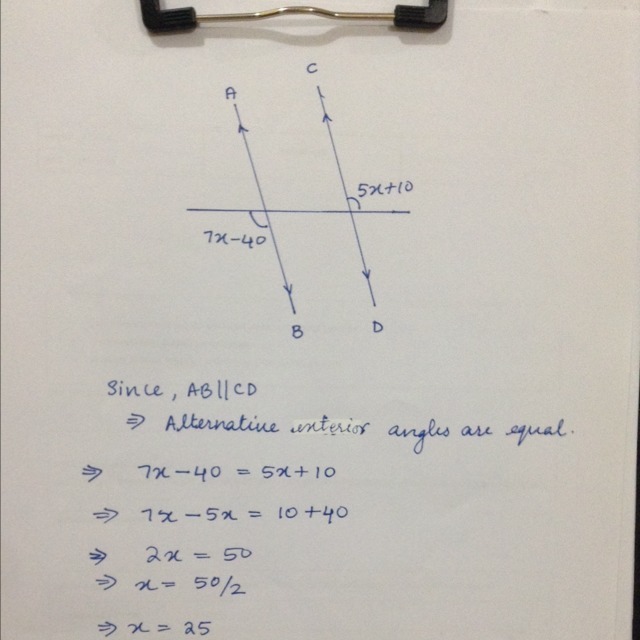 C
A
5x+10
7x-40
B
D
Since, AB||CD
⇒ Alternative angles are equal.
⇒ 7x-40 = 5x+10
⇒ 7x-5x = 10+40
⇒ 2x = 50
⇒ x = 50/2
⇒ x = 25